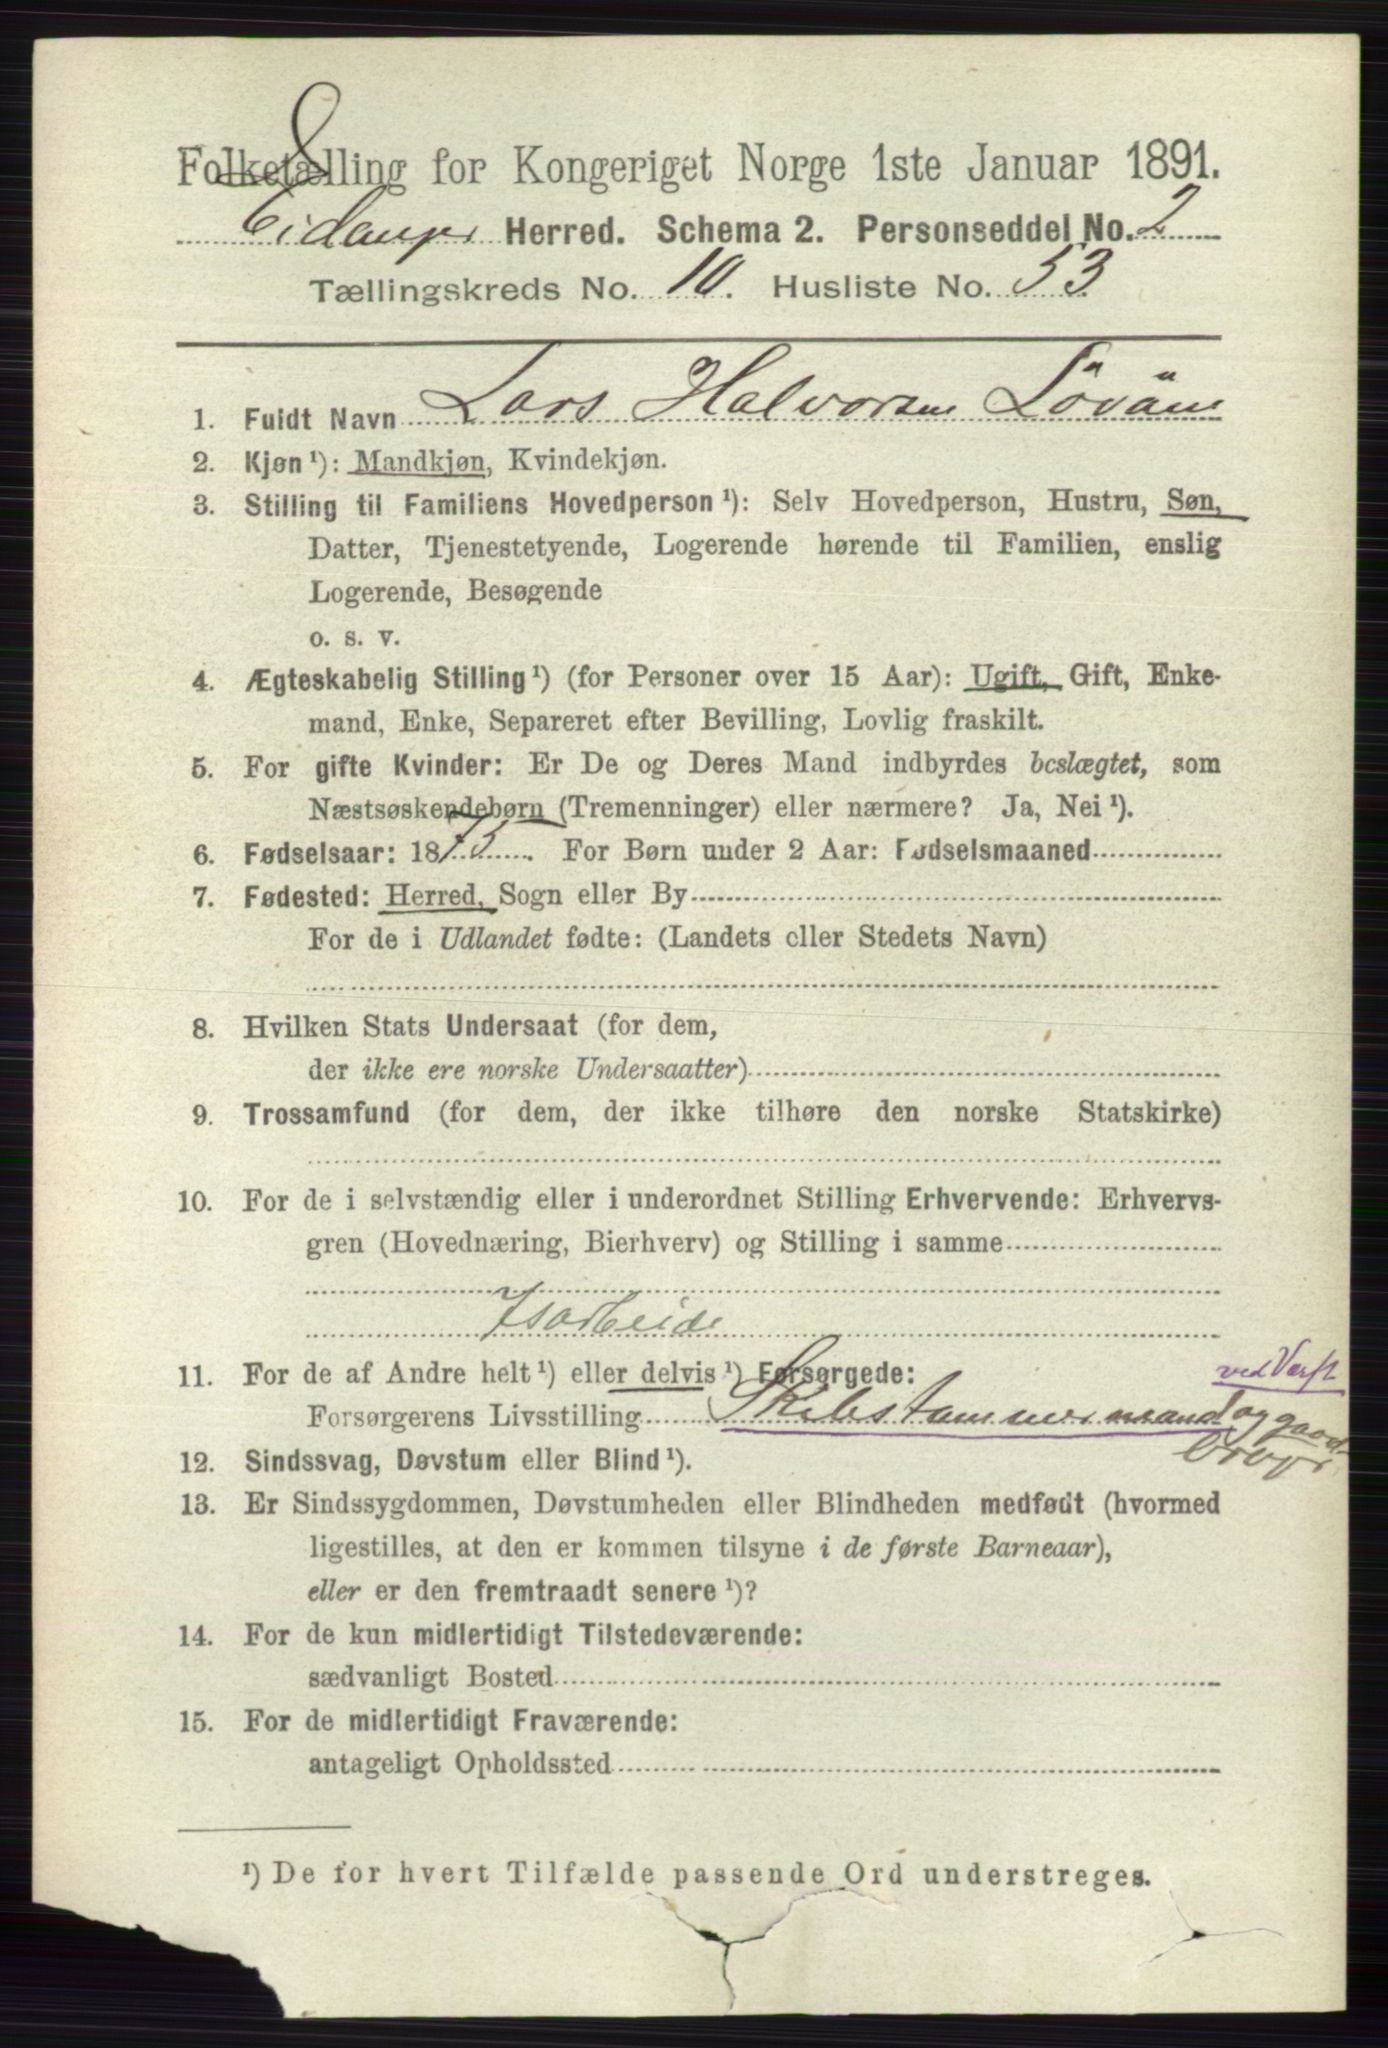 8
Folketælling for Kongeriget Norge 1ste Januar 1891.
Eidanger Herred. Schema 2. Personseddel No. 2
Tællingskreds No. 10. Husliste No. 53
1. Fuldt Navn Lars Halvorsen
2. Kjøn ¹): Mandkjøn, Kvindekjøn.
3. Stilling til Familiens Hovedperson ¹): Selv Hovedperson, Hustru, Søn,
Datter, Tjenestetyende, Logerende hørende til Familien, enslig
Logerende, Besøgende
o. s. v.
4. Ægteskabelig Stilling ¹) (for Personer over 15 Aar): Ugift, Gift, Enke-
mand, Enke, Separeret efter Bevilling, Lovlig fraskilt.
5. For gifte Kvinder: Er De og Deres Mand indbyrdes beslægtet, som
Næstsøskendebørn (Tremenninger) eller nærmere? Ja, Nei ¹).
6. Fødselsaar: 1873. For Børn under 2 Aar: Fødselsmaaned
7. Fødested: Herred, Sogn eller By
For de i Udlandet fødte: (Landets eller Stedets Navn)
8. Hvilken Stats Undersaat (for dem,
der ikke ere norske Undersaatter)
9. Trossamfund (for dem, der ikke tilhøre den norske Statskirke)
10. For de i selvstændig eller i underordnet Stilling Erhvervende: Erhvervs-
gren (Hovednæring, Bierhverv) og Stilling i samme
Isarbeide
11. For de af Andre helt ¹) eller delvis ¹) Forsørgede:
ved Verft
Forsørgerens Livsstilling Skibstømmermand og gaard-
bruger
12. Sindssvag, Døvstum eller Blind ¹).
13. Er Sindssygdommen, Døvstumheden eller Blindheden medfødt (hvormed
ligestilles, at den er kommen tilsyne i de første Barneaar),
eller er den fremtraadt senere ¹)?
14. For de kun midlertidigt Tilstedeværende:
sædvanligt Bosted
15. For de midlertidigt Fraværende:
antageligt Opholdssted
¹) De for hvert Tilfælde passende Ord understreges.